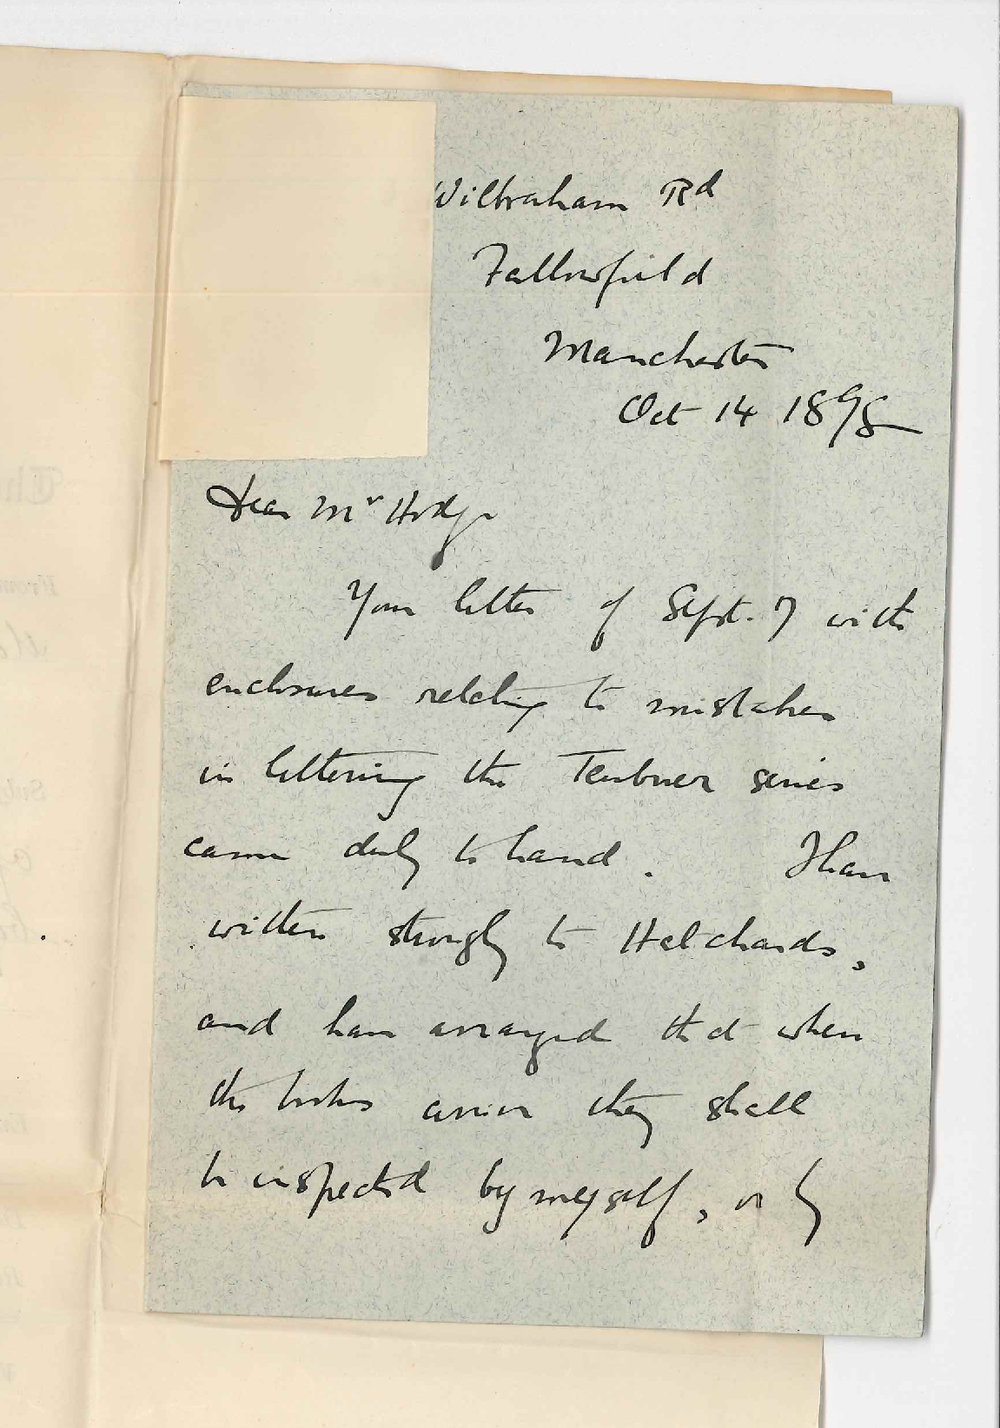 Wilbraham Rd
Fallowfield
Manchester
Oct 14 1898
Dear Mr Hodge
Your letter of Sept. 7 with
enclosures relating to mistakes
in lettering the Teubner series
came duly to hand. I have
written strongly to Hatchards,
and have arranged that when
the books arrive they shall
be inspected by myself, or by